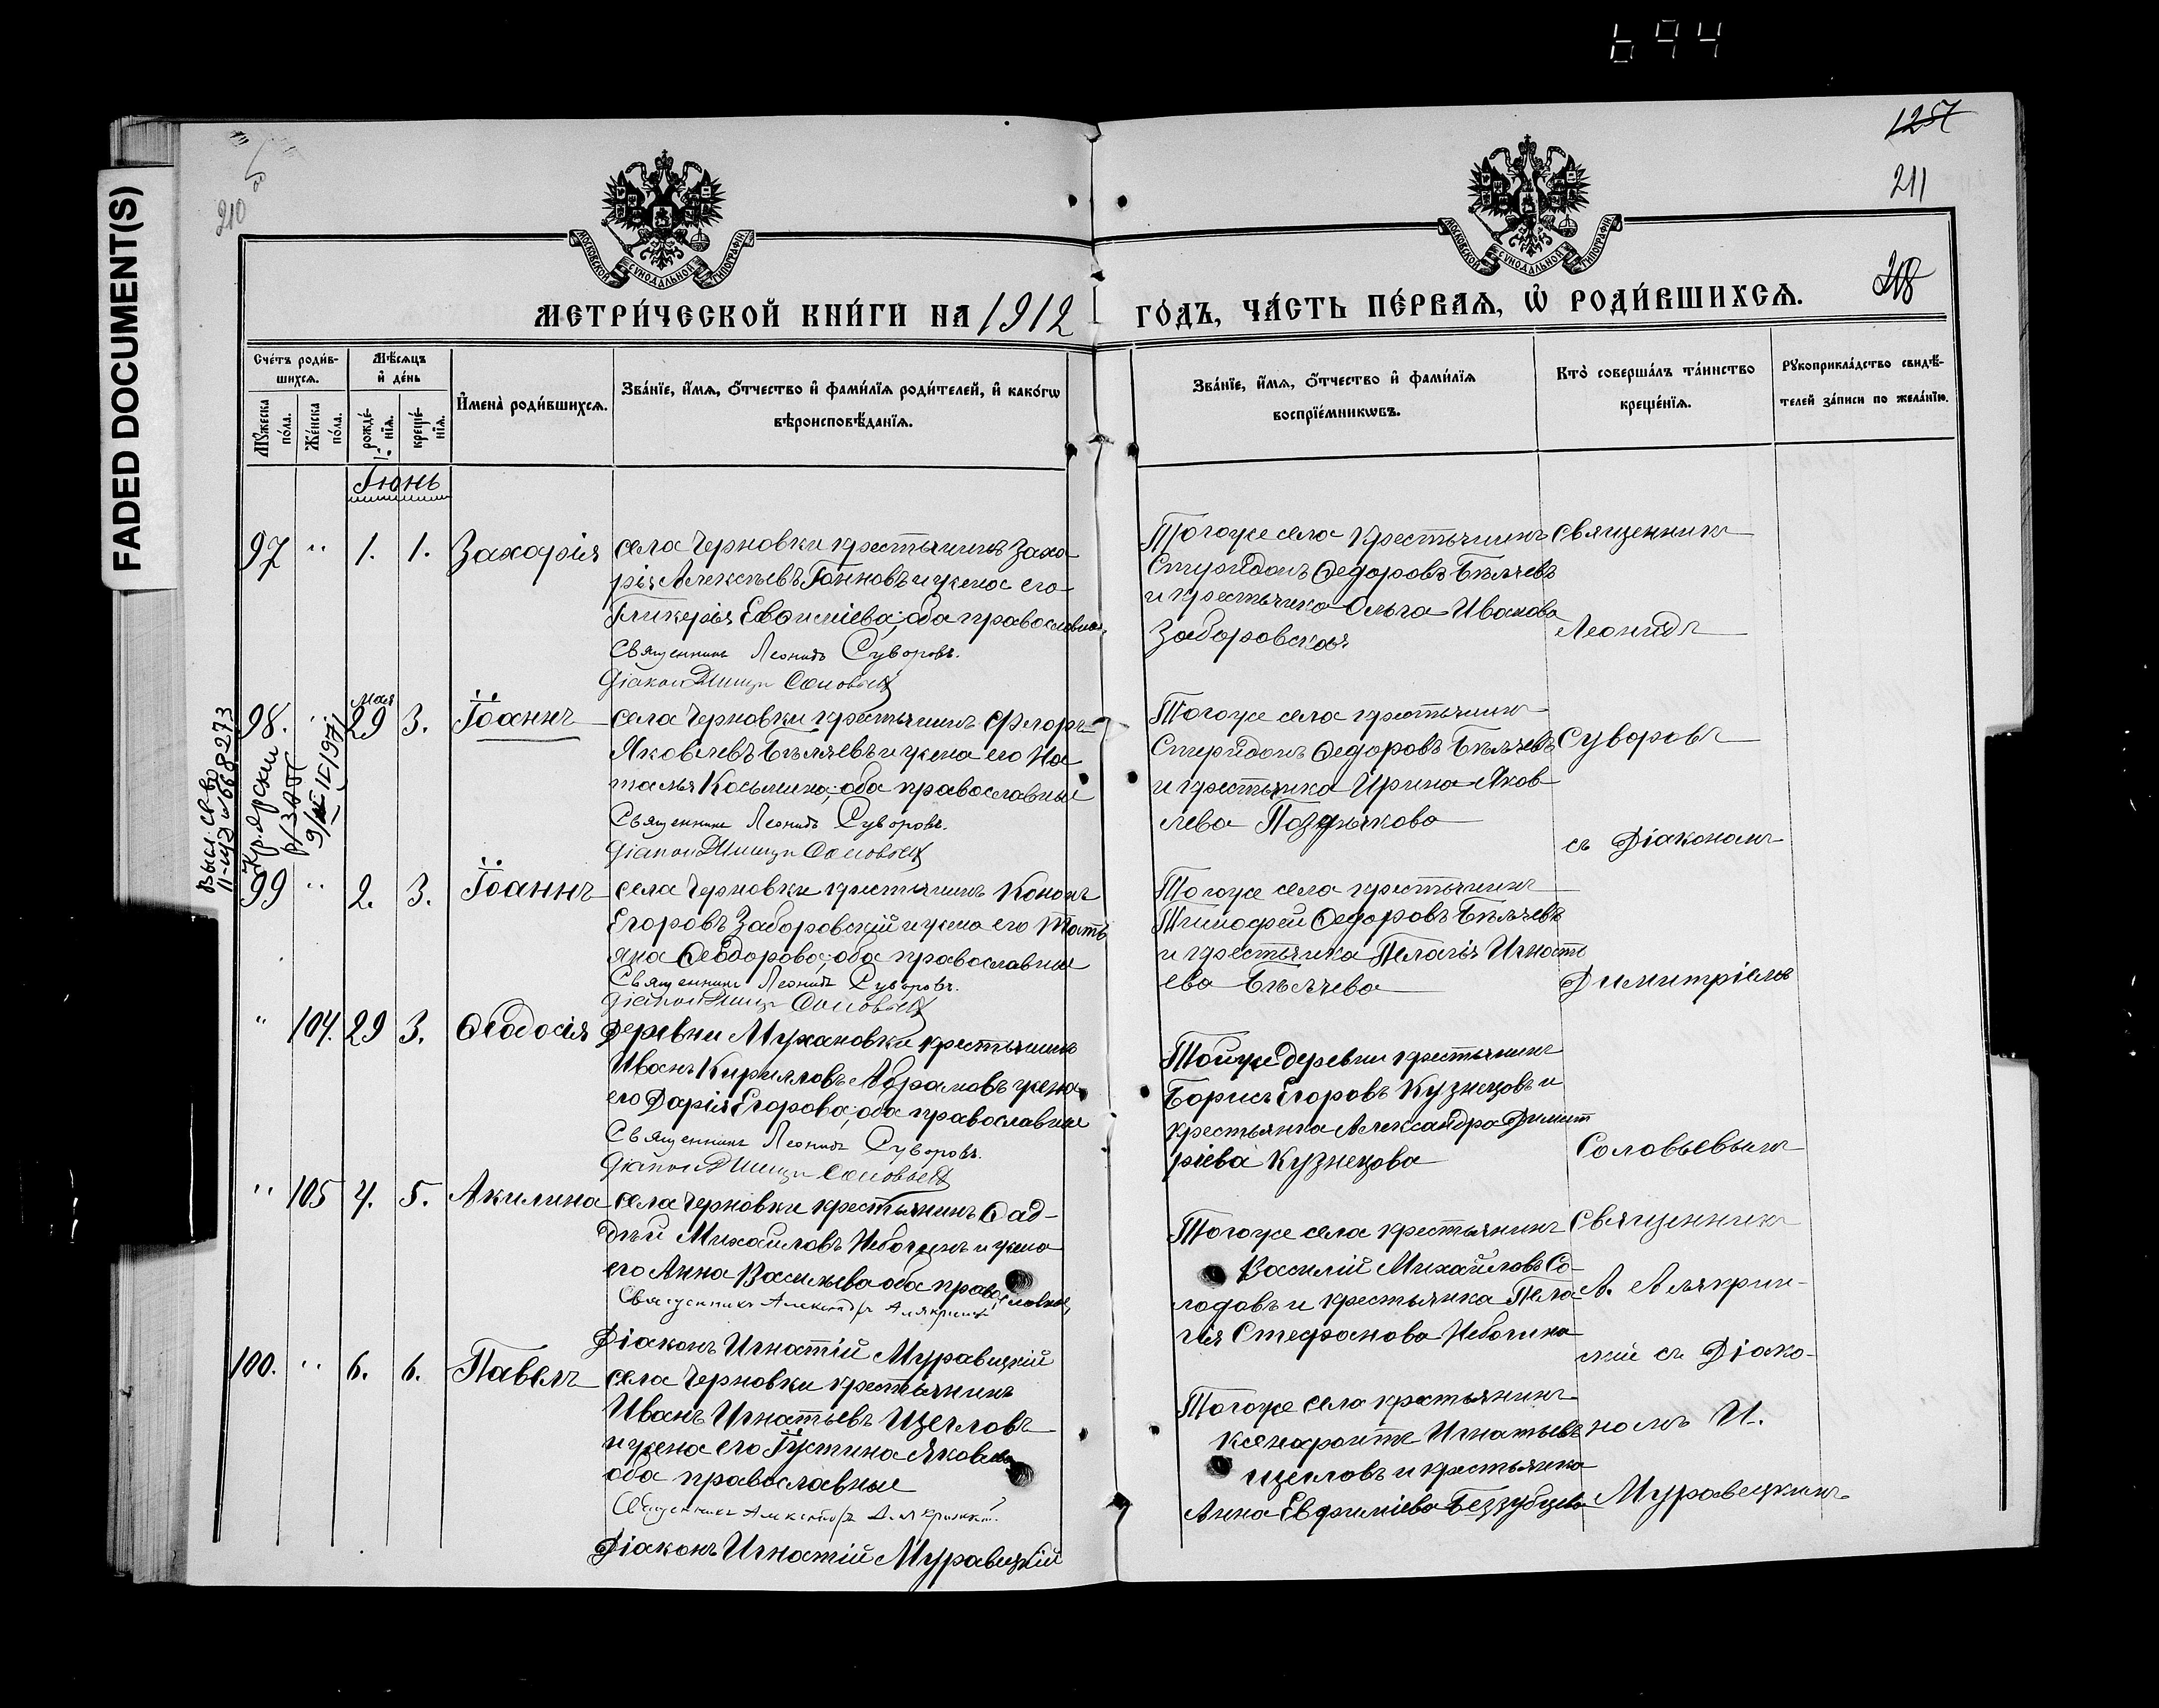 694
FADED DOCUMENT(S)
210
1257
211
218
МОСКОВСКОЙ СУНОДАЛЬНОЙ ТИПОГРАФІИ
МОСКОВСКОЙ СУНОДАЛЬНОЙ ТИПОГРАФІИ
МЕТРИ́ЧЕСКОЙ КНИ́ГИ НА 1912 ГО́ДЪ, ЧА́СТЬ ПЕ́РВАЯ, Ѡ РОДИ́ВШИХСЯ.
Сче́тъ роди́в-
шихся.
Мѣ́сяцъ
и де́нь
Му́жеска по́ла.
Же́нска по́ла.
рожде́-нія.
креще́-нія.
Имена̀ роди́вшихся.
Зва́ніе, и́мя, о́тчество и фами́лія роди́телей, и како́гѡ
вѣроисповѣ́данія.
Зва́ніе, и́мя, о́тчество и фами́лія
воспріе́мникѡвъ.
Кто̀ соверша́лъ та́инство
креще́нія.
Рукоприкла́дство свидѣ́-
телей за́писи по жела́нію.
Іюнь
97 " 1. 1. Захарія
села Черновки крестьянинъ Заха-
рія Алексѣевъ Іоанновъ и жена его
Гликерія Евѳиміева; оба православные
Священникъ Леонидъ Суворовъ.
Діаконъ Димитр Соловьев
Тогоже села крестьянинъ
Спиридонъ Ѳедоровъ Бѣляевъ
и крестьянка Ольга Иванова
Заборовская
Священникъ
Леонидъ
98. " мая 29 3. Іоаннъ
села Черновки крестьянинъ Флоръ
Яковлевъ Бѣляевъ и жена его На-
талья Косьмина; оба православные
Священникъ Леонидъ Суворовъ.
Діаконъ Димитр Соловьев
Тогоже села крестьянинъ
Спиридонъ Ѳедоровъ Бѣляевъ
и крестьянка Ирина Яков
лева Позднякова
Суворовъ
съ Діакономъ
Высл. св-во
II-ИЭ № 668273
Кр.Ярский
р/ЗАГС
9/IV 1971
99 " 2. 3. Іоаннъ
села Черновки крестьянинъ Кононъ
Егоровъ Заборовскій и жена его Тать
яна Ѳеодорова; оба православные
Священникъ Леонидъ Суворовъ.
Діаконъ Димитр Соловьев
Тогоже села крестьянинъ
Тимофей Ѳедоровъ Бѣляевъ
и крестьянка Пелагія Игнать
ева Бѣляева
Димитріемъ
" 104. 29 3. Ѳеодосія
Деревни Мухановки крестьянинъ
Иванъ Кирилловъ Абрамовъ жена
его Дарія Егорова; оба православные
Священникъ Леонидъ Суворовъ.
Діаконъ Димитр Соловьев
Тойже деревни крестьянинъ
Борисъ Егоровъ Кузнецовъ и
крестьянка Александра Димит
ріева Кузнецова
Соловьевымъ
" 105 4. 5. Акилина
села Черновки крестьянинъ Ѳад-
дѣй Михайловъ Небогинъ и жена
его Анна Васильева оба православные,
Священникъ Александръ Алякринскій
Діаконъ Игнатій Муравицкій
Тогоже села крестьянинъ
Василій Михайловъ Со-
лодовъ и крестьянка Пела
гія Стефанова Небогина
Священникъ
А. Алякрин-
скій съ Діако-
100. " 6. 6. Павелъ
села Черновки крестьянинъ
Иванъ Игнатьевъ Щегловъ
и жена его Іустина Яковлева
оба православные
Священникъ Александръ Алякринскій
Діаконъ Игнатій Муравицкій
Тогоже села крестьянинъ
Ксенофонтъ Игнатьевъ
Щегловъ и крестьянка
Анна Евфиміева Беззубцева
номъ И.
Муравецкимъ